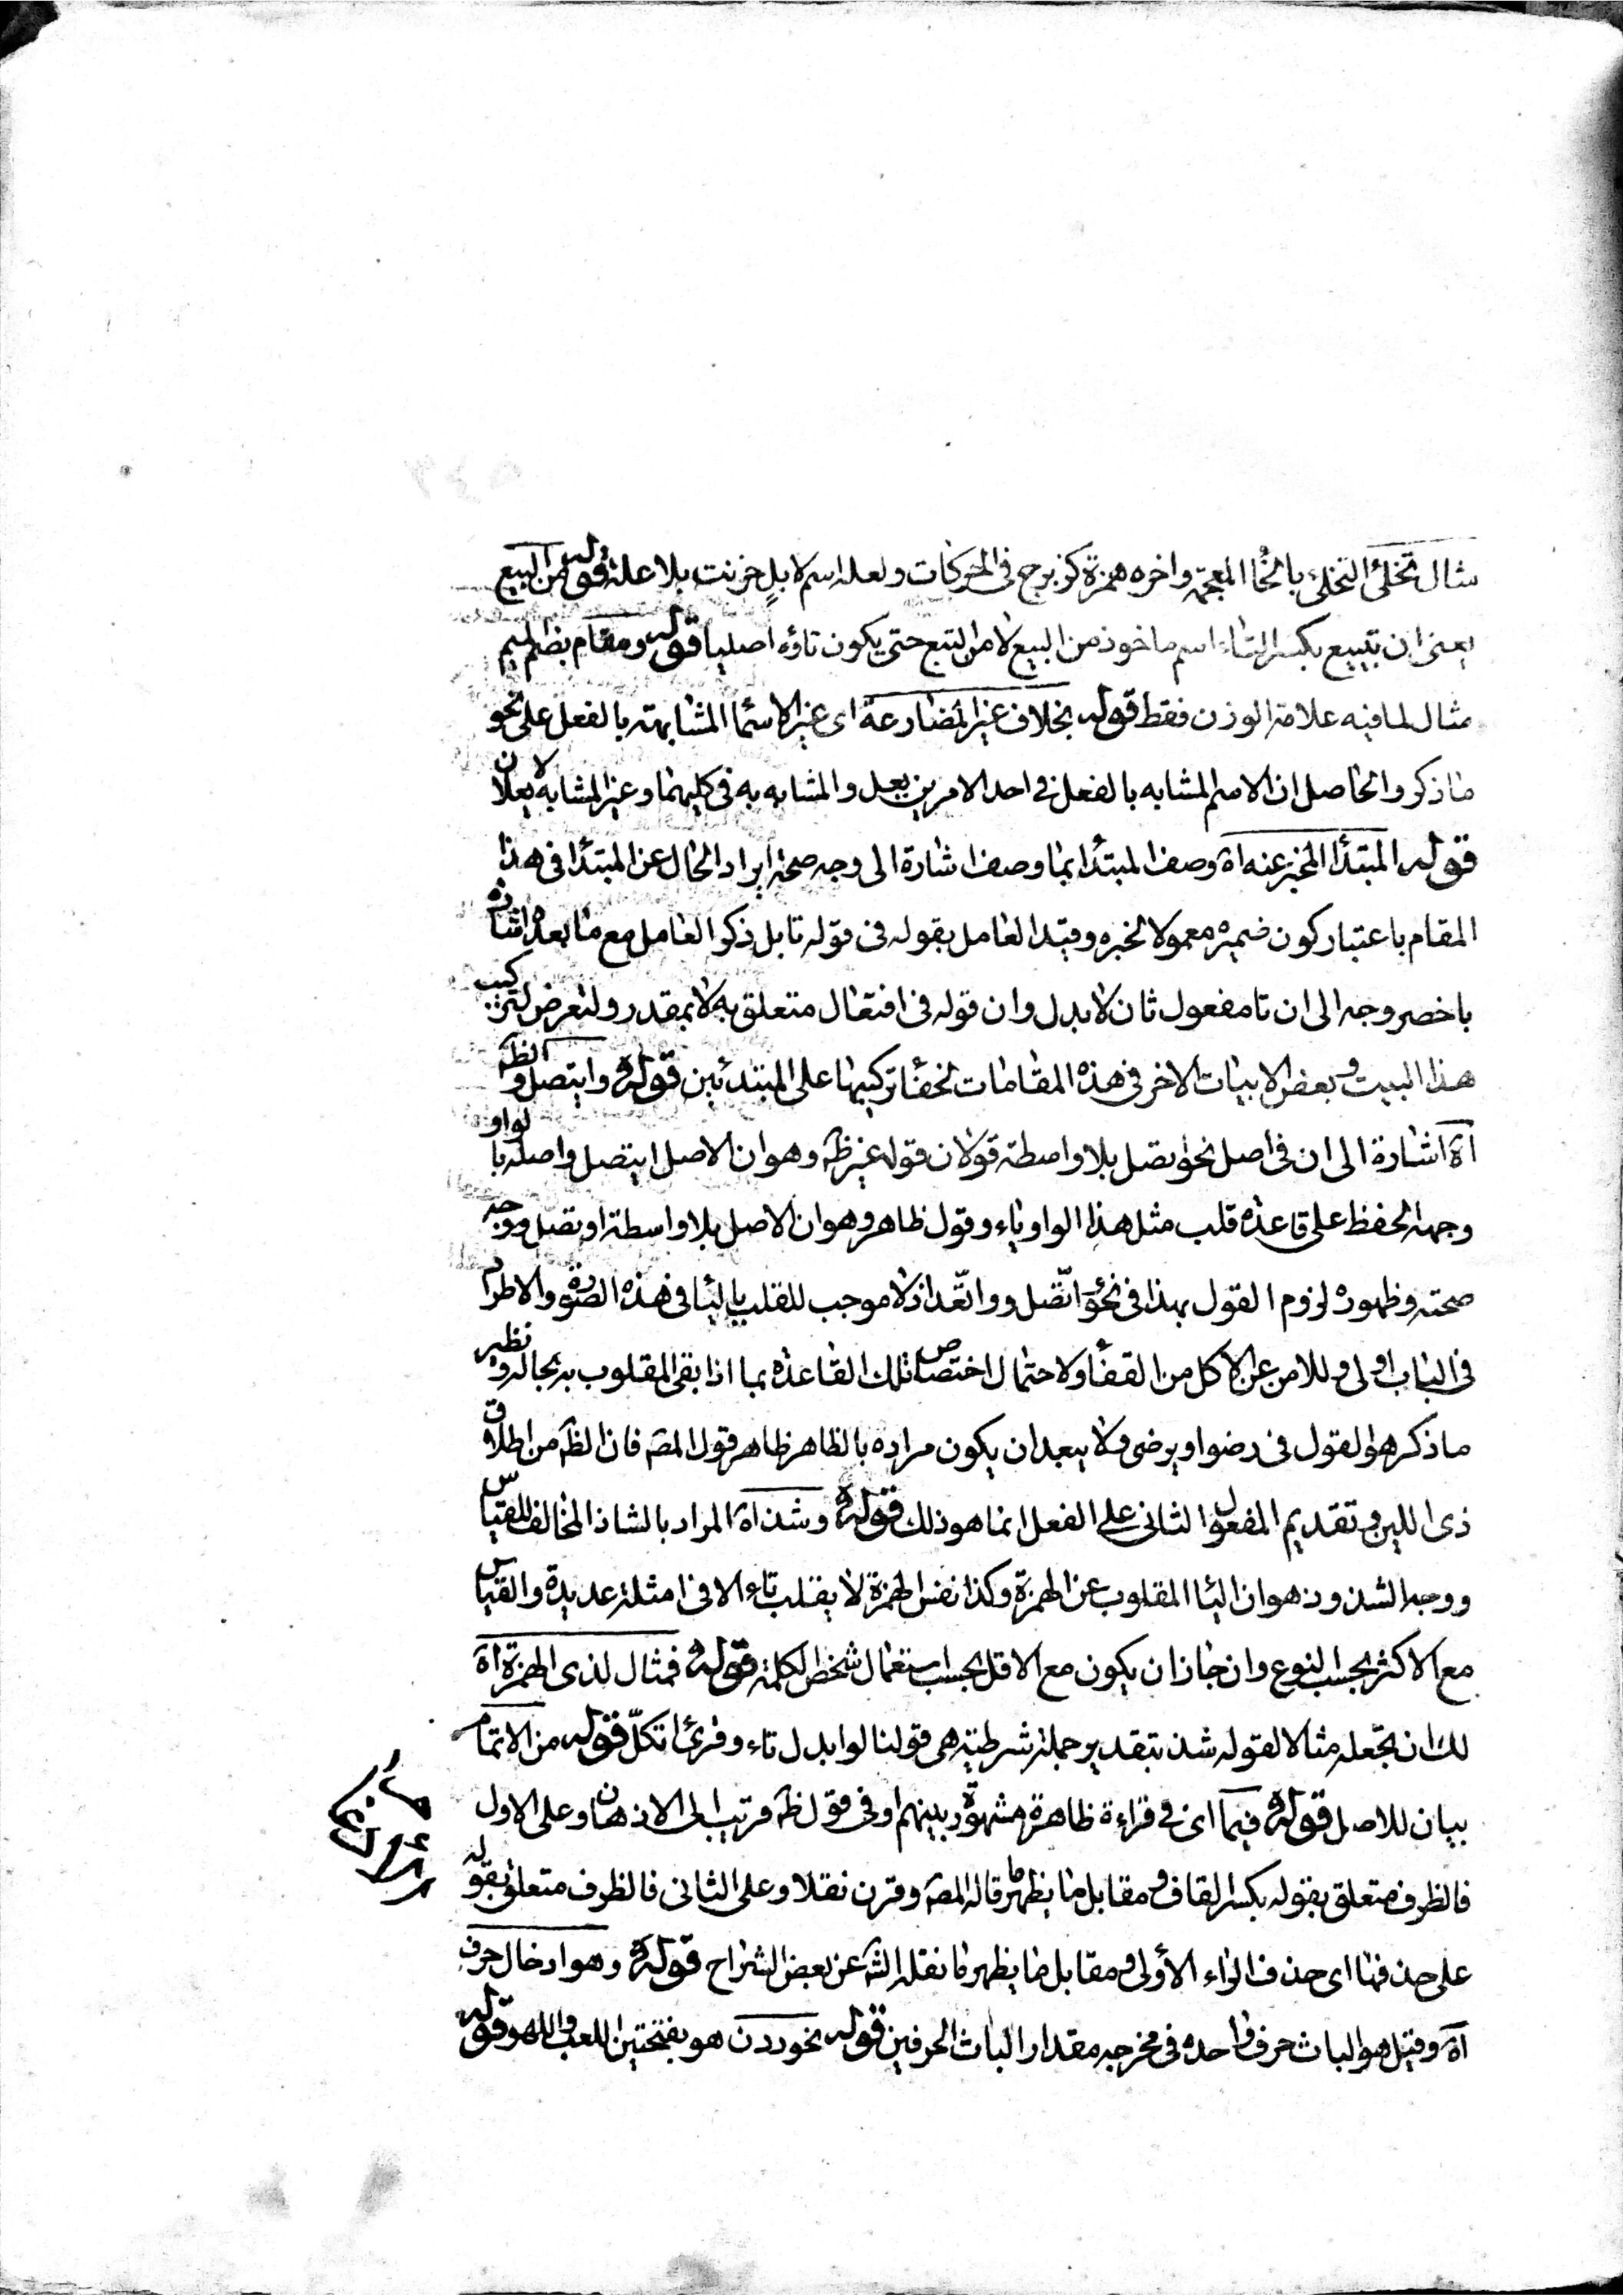 مثال تخلئ التخلئ بالخا المعجمة واخره همزة كزبرج فى الحركات ولعله اسم لابل خرنت بلا علة قوله من البيع
يعنى ان تبييع بكسر التاء اسم ماخوذ من البيع لا من التبع حتى يكون تاؤه اصليا قوله ومقام بضم الميم
مثال لما فيه علامة الوزن فقط قوله بخلاف غير المضارعة اى غير الاسما المشابهته بالفعل على نحو
ما ذكر والحاصل ان الاسم المشابه بالفعل فى احد الامرين يعل والمشابه به فى كليهما وغير المشابه لا يعلان
قوله المبتدأ المخبر عنه اه وصف المبتدا بما وصف اشارة الى وجه صحة ايراد الحال عن المبتدا فى هذا
المقام باعتبار كون ضميره معمولا لخبره وقيد العامل بقوله فى قوله تا بل ذكر العامل مع ما بعده اشارة
باخصر وجه الى ان تا مفعول ثان لابدل وان قوله فى افتعال متعلق به لا بمقدر ولتعرض لتركيب
هذا البيت وبعض الابيات الاخر فى هذه المقامات لخفا تركيبها على المبتدئين قوله وايتصل والظ
اه اشارة الى ان فى اصل نحو اتصل بلا واسطة قولان قوله غير ظ وهو ان الاصل ايتصل واصله بالواو
وجهه الحفظ على قاعدة قلب مثل هذا الواو ياء وقول ظاهر وهو ان الاصل بلا واسطة اوتصل ووجه
صحته وظهوره لزوم القول بهذا فى نحو اتّصل واتّعد اذ لا موجب للقلب بالياء فى هذه الصورة والاطراد
فى الباب اولى وللامن عن الاكل من القفا ولاحتمال اختصاص تلك القاعدة بما اذا بقى المقلوب به بحاله ونظير
ما ذكر هو القول فى رضوا ويرضى ولا يبعد ان يكون مراده بالظاهر ظاهر قول المص فان الظ من اطلاق
ذى اللين وتقديم المفعول الثانى على الفعل انما هو ذلك قوله وشذ اه المراد بالشاذ المخالف للقياس
ووجه الشذوذ هو ان اليا المقلوب عن الهمزة وكذا نفس الهمزة لا يقلب تاء الا فى امثلة عديدة والقياس
مع الاكثر بحسب النوع وان جاز ان يكون مع الاقل بحسب استعمال شخص الكلمة قوله فمثال لذى الهمزة اه
لك ان تجعله مثالا لقوله شذ بتقدير جملة شرطية هى قولنا لو ابدل تاء وقرئ اتكلّ قوله من الاتمام
بيان للاصل قوله فيما اى فى قراءة ظاهرة مشهورة بينهم او فى قول ظ قريب الى الاذهان وعلى الاول
فالظرف متعلق بقوله بكسر القاف ومقابل ما يظهر ما قاله المص وقرن نقلا وعلى الثانى فالظرف متعلق بقوله
على حذفها اى حذف الراء الأولى ومقابل ما يظهر ما نقله الش عن بعض الشراح قوله وهو ادخال حرف
اه وقيل هو الباث حرف واحده فى مخرجه مقدار الباث الحرفين قوله نحو ددن هو بفتحتين اللعب واللهو قوله